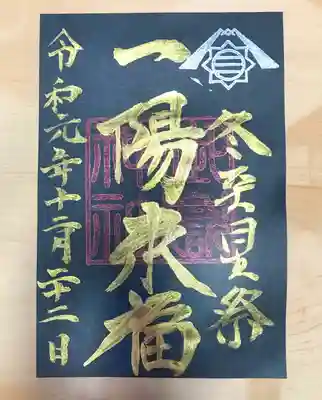 冬至星祭
一陽来福
令和元年十二月二十二日